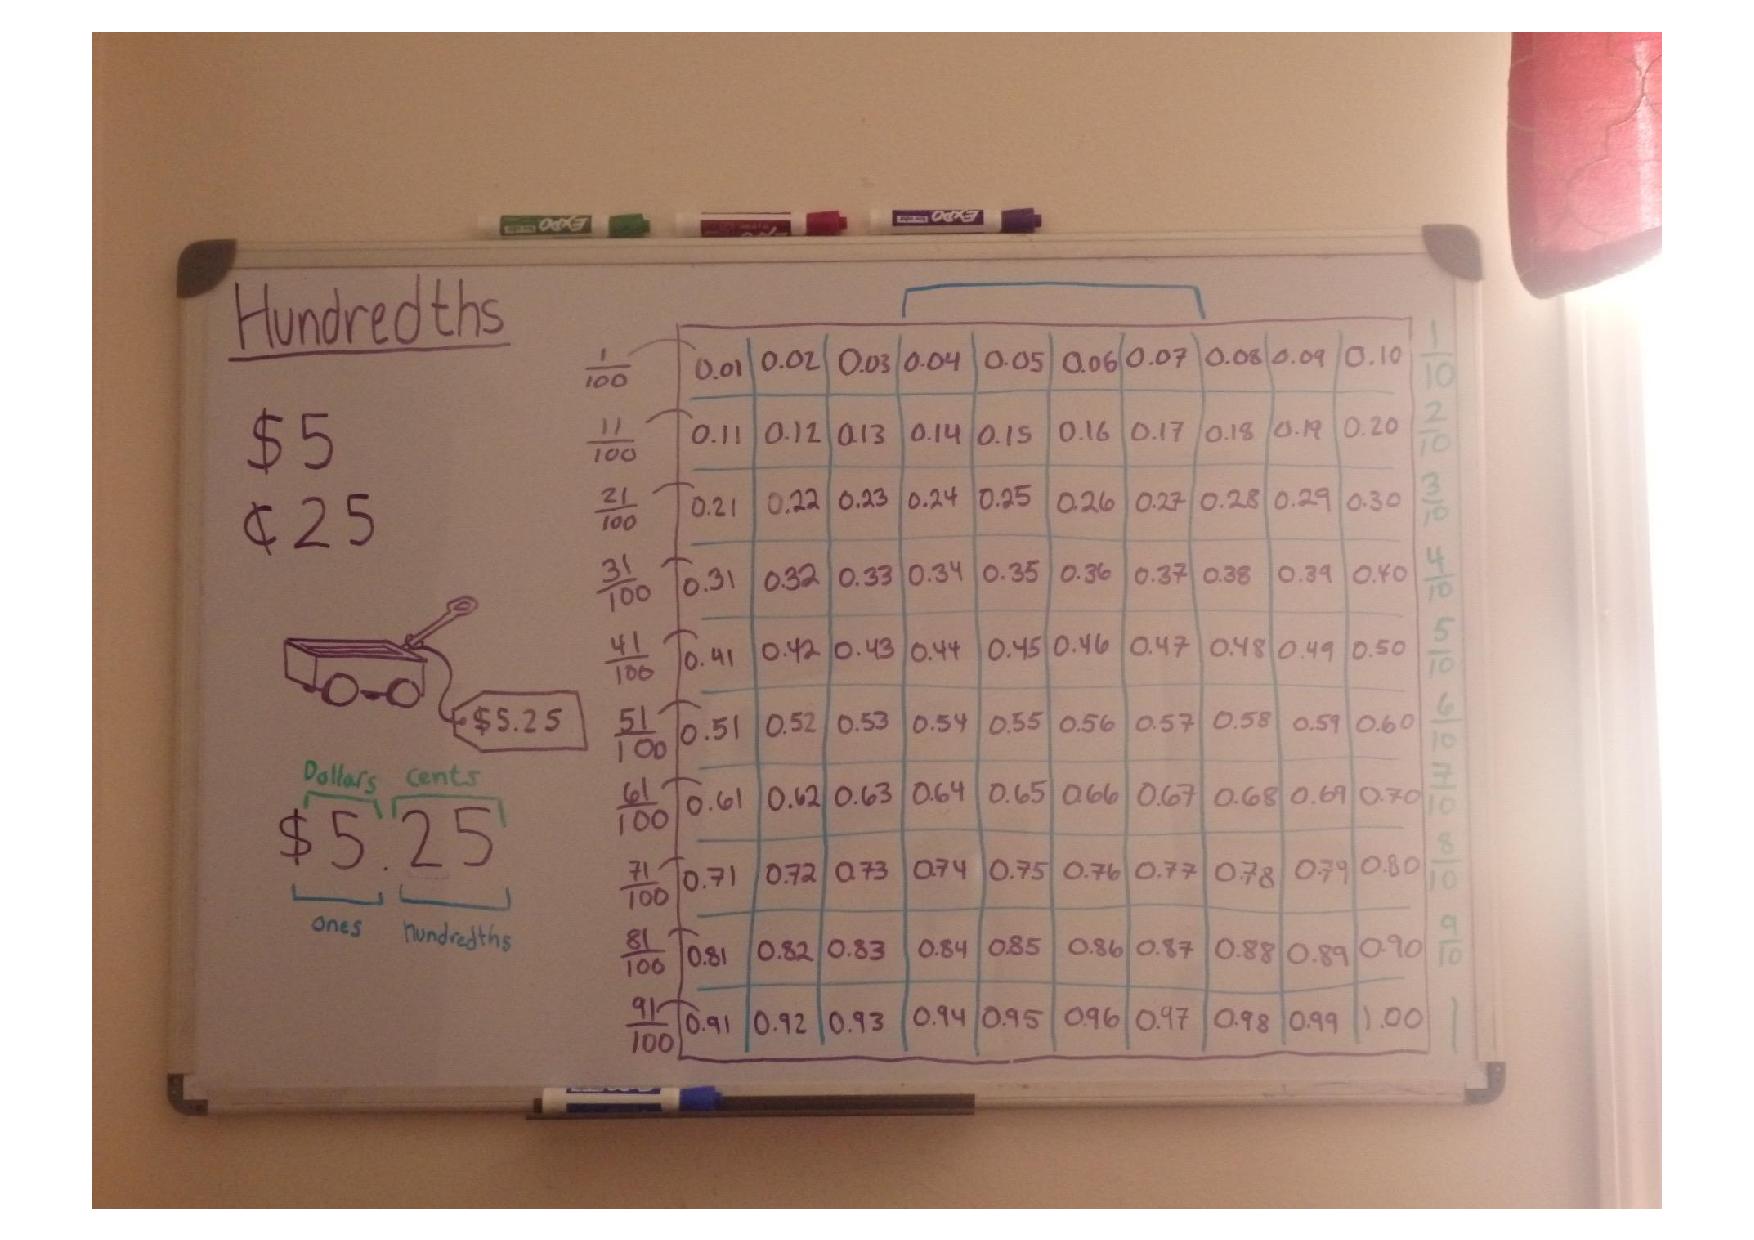 EXPO
EXPO
Hundredths
$5
¢25
$5.25
Dollars cents
$5.25
ones hundredths
1/100 0.01 0.02 0.03 0.04 0.05 0.06 0.07 0.08 0.09 0.10 1/10
11/100 0.11 0.12 0.13 0.14 0.15 0.16 0.17 0.18 0.19 0.20 2/10
21/100 0.21 0.22 0.23 0.24 0.25 0.26 0.27 0.28 0.29 0.30 3/10
31/100 0.31 0.32 0.33 0.34 0.35 0.36 0.37 0.38 0.39 0.40 4/10
41/100 0.41 0.42 0.43 0.44 0.45 0.46 0.47 0.48 0.49 0.50 5/10
51/100 0.51 0.52 0.53 0.54 0.55 0.56 0.57 0.58 0.59 0.60 6/10
61/100 0.61 0.62 0.63 0.64 0.65 0.66 0.67 0.68 0.69 0.70 7/10
71/100 0.71 0.72 0.73 0.74 0.75 0.76 0.77 0.78 0.79 0.80 8/10
81/100 0.81 0.82 0.83 0.84 0.85 0.86 0.87 0.88 0.89 0.90 9/10
91/100 0.91 0.92 0.93 0.94 0.95 0.96 0.97 0.98 0.99 1.00 1